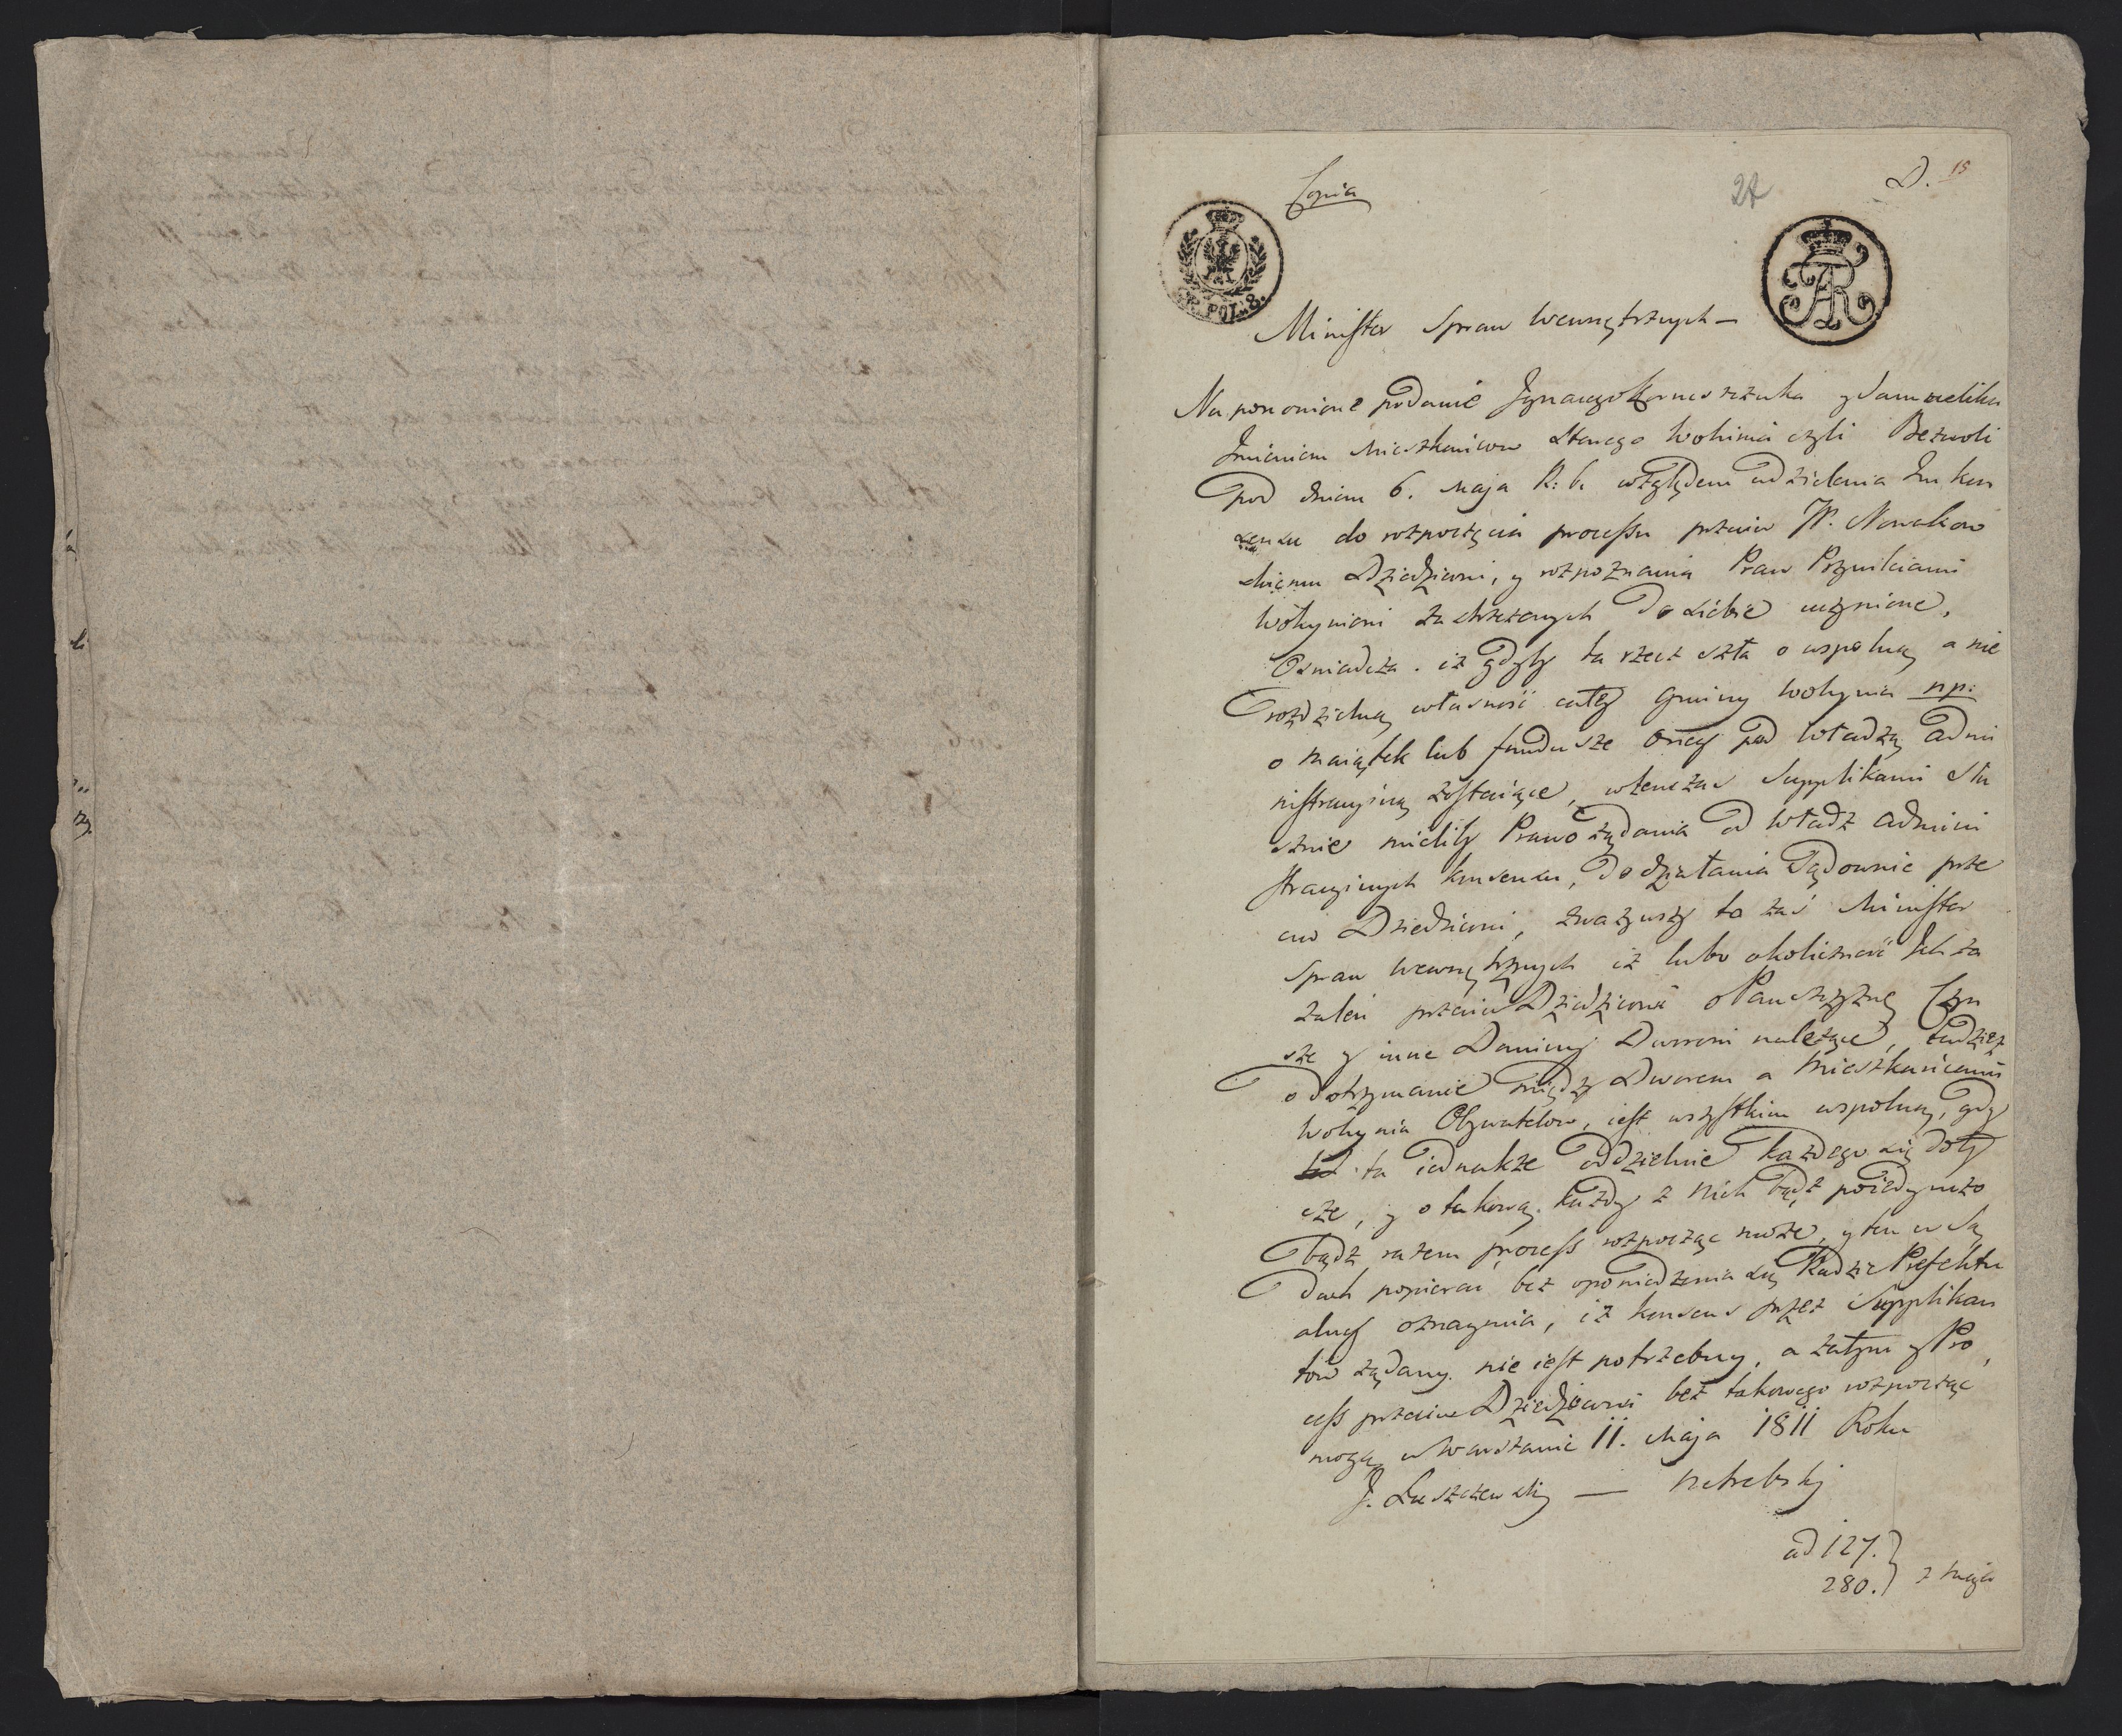 Copia
27
D. 15
GR. POL: 8.
FAR
Minister Spraw Wewnętrznych –
Na ponowione podanie Ignacego y Samuelika
Imieniem Mieszkańcow Starego Wohinia czyli Bezwoli
pod dniem 6. Maja R: b. względem udzielenia Im kon
sensu do rozpoczęcia processu przeciw W. Nowakow
skiemu Dziedzicowi, y rozpoznania Praw Przywileiami
Wohyniowi zastrzeżonych do siebie uczynione,
Oswiadcza. iż gdyby ta rzecz szła o wspolną a nie
rozdzielną własność całey Gminy Wohynia np:
o maiątek lub fundusze oney pod władzą admi
nistracyiną zostaiące, wtenczas Supplikanci słu
sznie mieliby Prawo żądania od Władz admini
stracyinych konsensu, do działania Sądownie prze
ciw Dziedzicowi, zważywszy to zaś Minister
Spraw Wewnętrznych iż lubo okoliczność Ich za
żaleń przeciw Dziedzicowi o Panszczyznę Czyn
sze y inne Daniny Dworowi należące, tudzież
o dotrzymanie między Dworem a Mieszkańcami
Wohynia Obywatelow, iest wszystkim wspolną, gdy
ta iednakże oddzielnie każdego się doty
cze, y o takową każdy z nich bądź poiedynczo
bądź razem process rozpocząc może, y ten w Są
dach popierac bez opowiedzenia się Radzie Prefektu
alney oznaymia, iż konsens przez Supplikan
tów żądany nie iest potrzebny, a zatym y Pro
cess przeciw Dziedzicowi bez takowego rozpocząc
mogą w Warszawie 11. Maja 1811 Roku
J. Łuszczewski — Netrebski
ad 127.
280. } z Maja